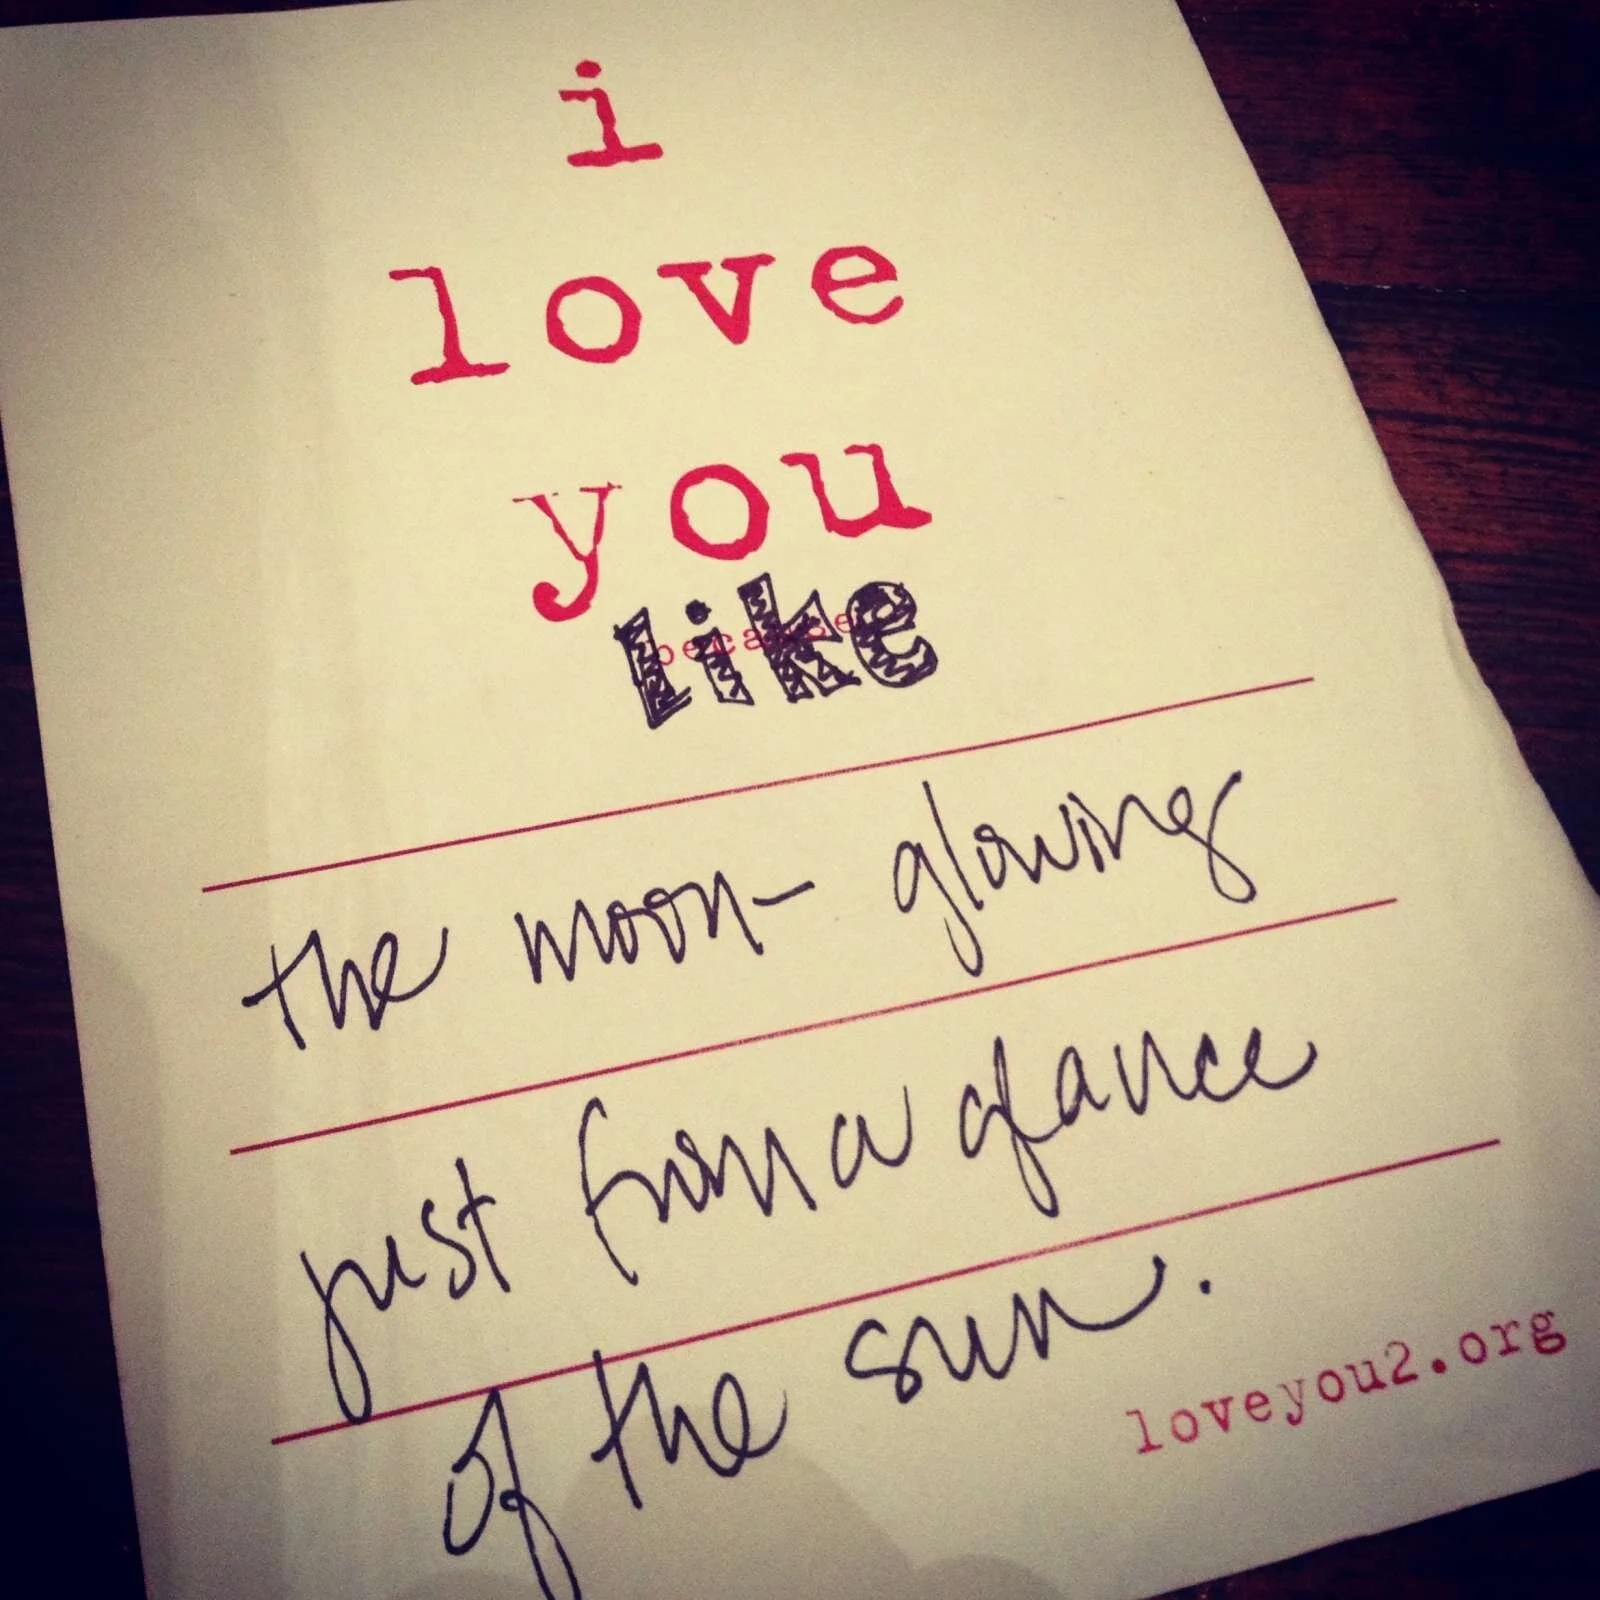 i
love
you
like
the moon- glowing
just from a glance
of the sun.
loveyou2.org